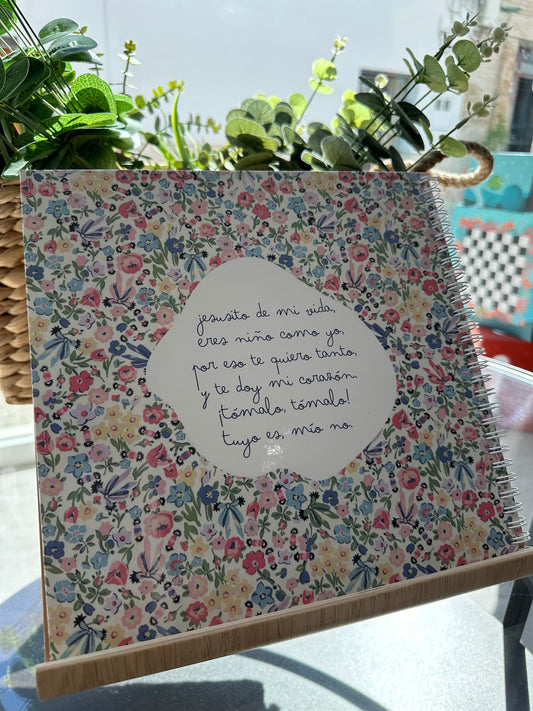 jesusito de mi vida,
eres niño como yo,
por eso te quiero tanto,
y te doy mi corazón,
¡tómalo, tómalo!
tuyo es, mío no.